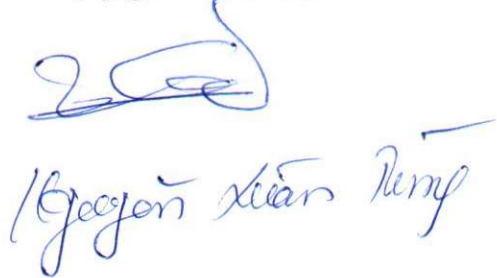 Nguyễn Xuân Dũng